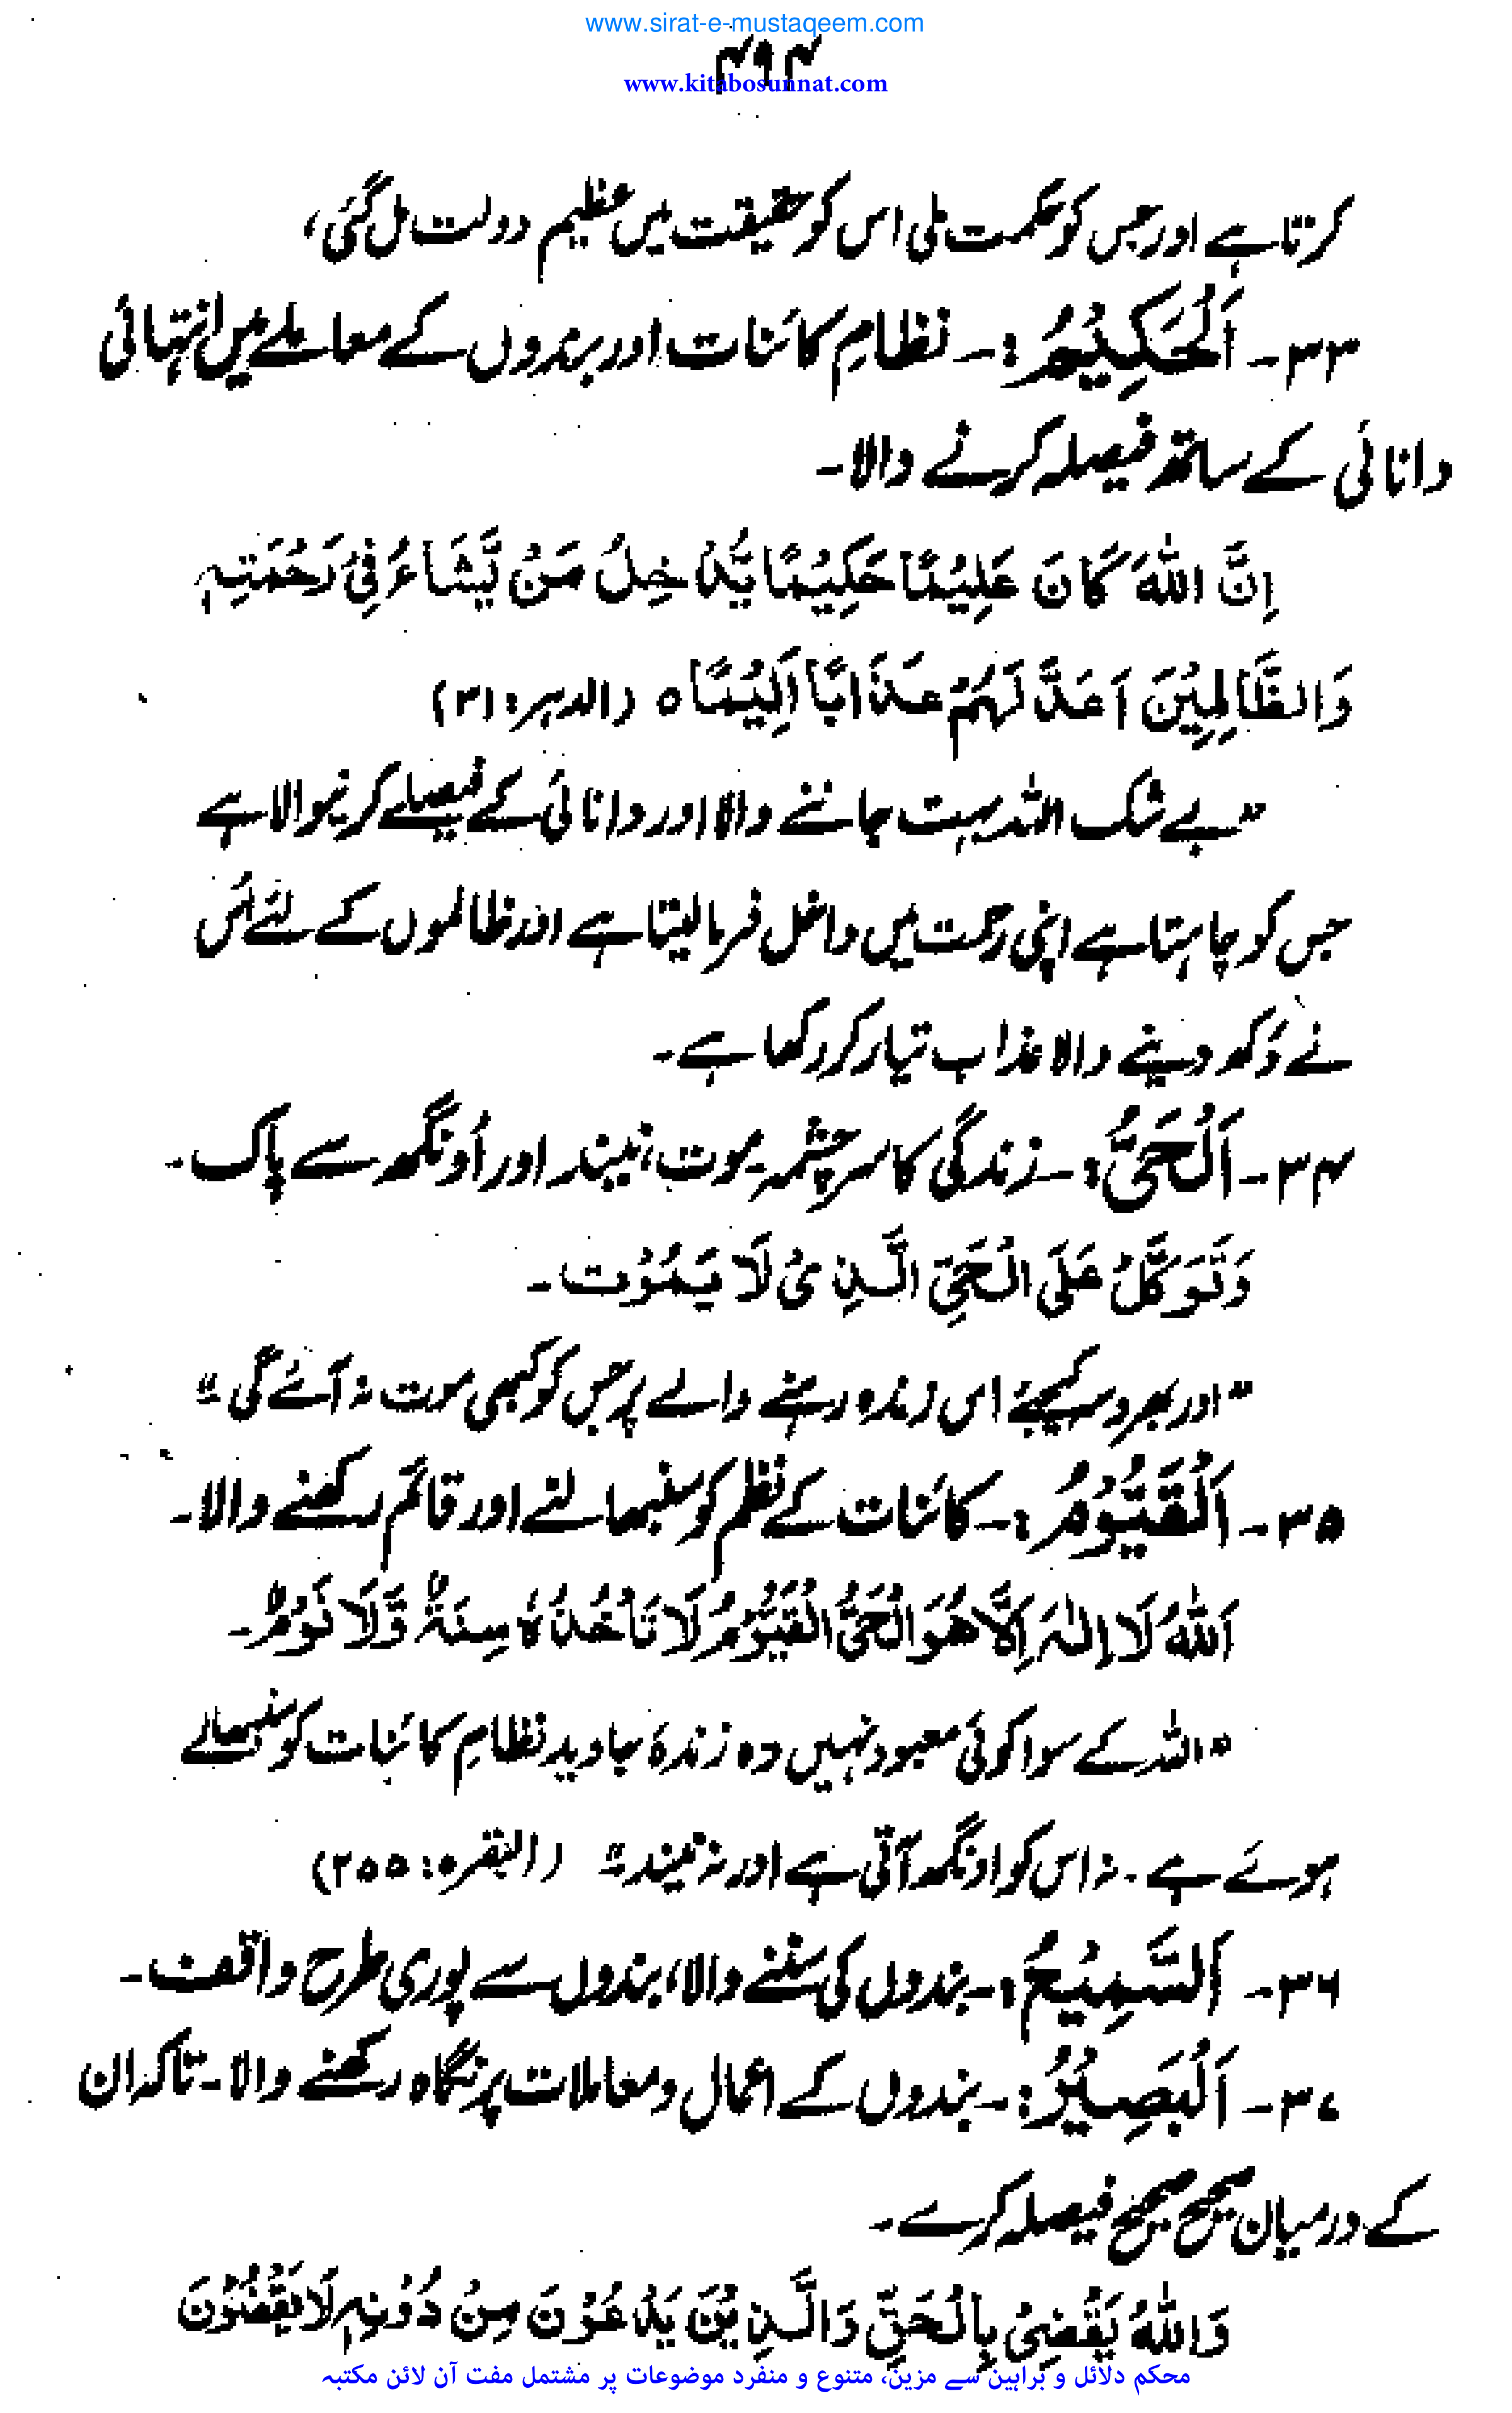 www.sirat-e-mustaqeem.com
۴۹۴
www.kitabosunnat.com
کرتا ہے اور جس کو حکمت ملی اس کو حقیقت میں عظیم دولت مل گئی،
۳۳۔ اَلْحَکِیْمُ :۔ نظامِ کائنات اور بندوں کے معاملے میں انتہائی
دانائی کے ساتھ فیصلہ کرنے والا۔
اِنَّ اللّٰهَ کَانَ عَلِیْمًا حَکِیْمًا یُّدْخِلُ مَنْ یَّشَاءُ فِیْ رَحْمَتِہٖ
وَالظّٰالِمِیْنَ اَعَدَّ لَہُمْ عَذَابًا اَلِیْمًا ہ (الدہر: ۳۱)
”بے شک اللہ بہت جاننے والا اور دانائی کے فیصلے کرنیوالا ہے
جس کو چاہتا ہے اپنی رحمت میں داخل فرما لیتا ہے اور ظالموں کے لئے اُس
نے دُکھ دینے والا عذاب تیار کر رکھا ہے۔
۳۴۔ اَلْحَیُّ :۔ زندگی کا سرچشمہ۔ موت، نیند اور اُونگھ سے پاک۔
وَتَوَکَّلْ عَلَی الْحَیِّ الَّذِیْ لَا یَمُوْت۔
”اور بھروسہ کیجئے اس زندہ رہنے والے پر جس کو کبھی موت نہ آئے گی“
۳۵۔ اَلْقَیُّوْمُ :۔ کائنات کے نظم کو سنبھالنے اور قائم رکھنے والا۔
اَللّٰهُ لَا اِلٰہَ اِلَّا هُوَ الْحَیُّ الْقَیُّوْمُ لَا تَأْخُذُہٗ سِنَۃٌ وَّلَا نَوْمٌ۔
”اللہ کے سوا کوئی معبود نہیں وہ زندۂ جاوید نظامِ کائنات کو سنبھالے
ہوئے ہے۔ نہ اس کو اونگھ آتی ہے اور نہ نیند“ (البقرہ: ۲۵۵)
۳۶۔ اَلسَّمِیْعُ :۔ بندوں کی سننے والا، بندوں سے پوری طرح واقف۔
۳۷۔ اَلْبَصِیْرُ :۔ بندوں کے اعمال و معاملات پر نگاہ رکھنے والا۔ تاکہ ان
کے درمیان صحیح صحیح فیصلہ کرے۔
وَاللّٰهُ یَقْضِیْ بِالْحَقِّ وَالَّذِیْنَ یَدْعُوْنَ مِنْ دُوْنِہٖ لَا یَقْضُوْنَ
محکم دلائل و براہین سے مزین، متنوع و منفرد موضوعات پر مشتمل مفت آن لائن مکتبہ